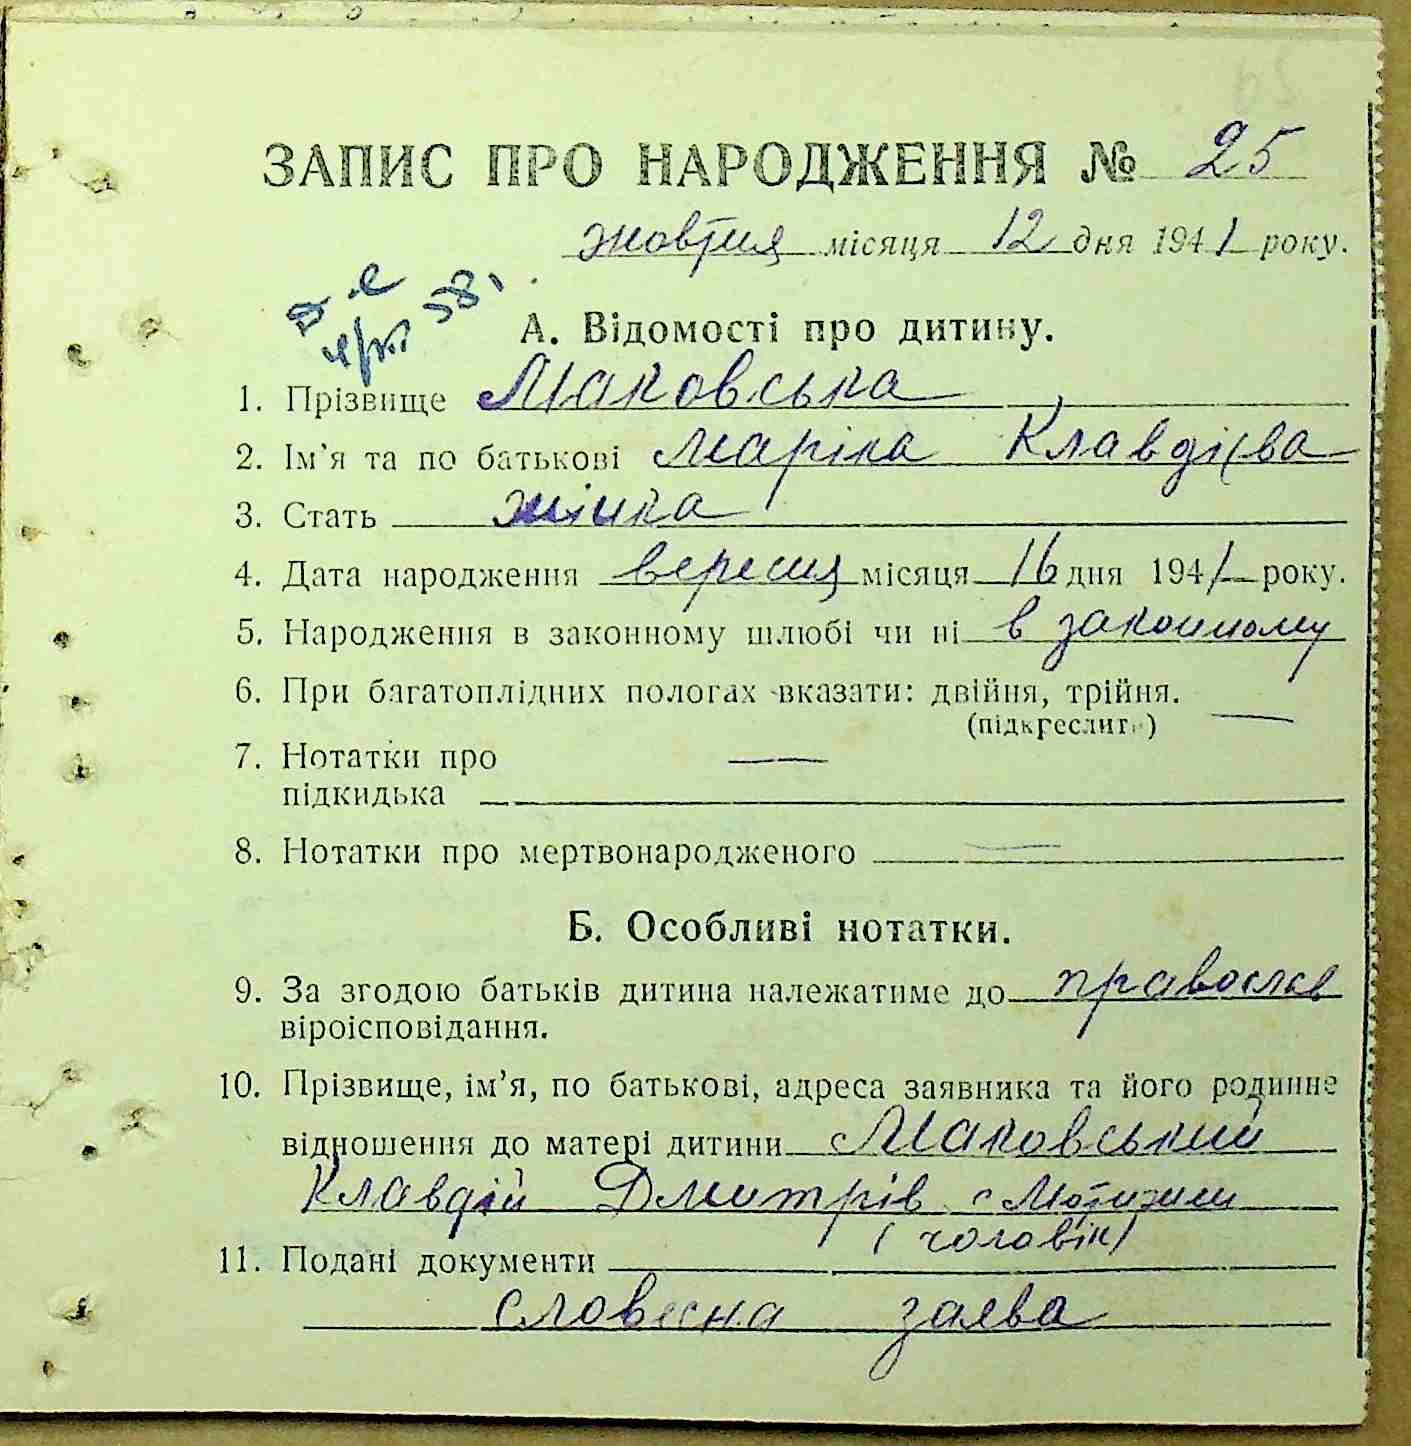 ЗАПИС ПРО НАРОДЖЕННЯ № 25
жовтня місяця 12 дня 1941 року.
58
А. Відомості про дитину.
1. Прізвище Маковська
2. Ім’я та по батькові Маріка Клавдієва
3. Стать жінка
4. Дата народження вересня місяця 16 дня 1941 року.
5. Народження в законному шлюбі чи ні в законному
6. При багатоплідних пологах вказати: двійня, трійня. —
(підкреслити)
7. Нотатки про —
підкидька
8. Нотатки про мертвонародженого —
Б. Особливі нотатки.
9. За згодою батьків дитина належатиме до православ
віроісповідання.
10. Прізвище, ім’я, по батькові, адреса заявника та його родинне
відношення до матері дитини Маковський
Клавдій Дмитрів с Мотижин
(чоловік)
11. Подані документи
словесна заява